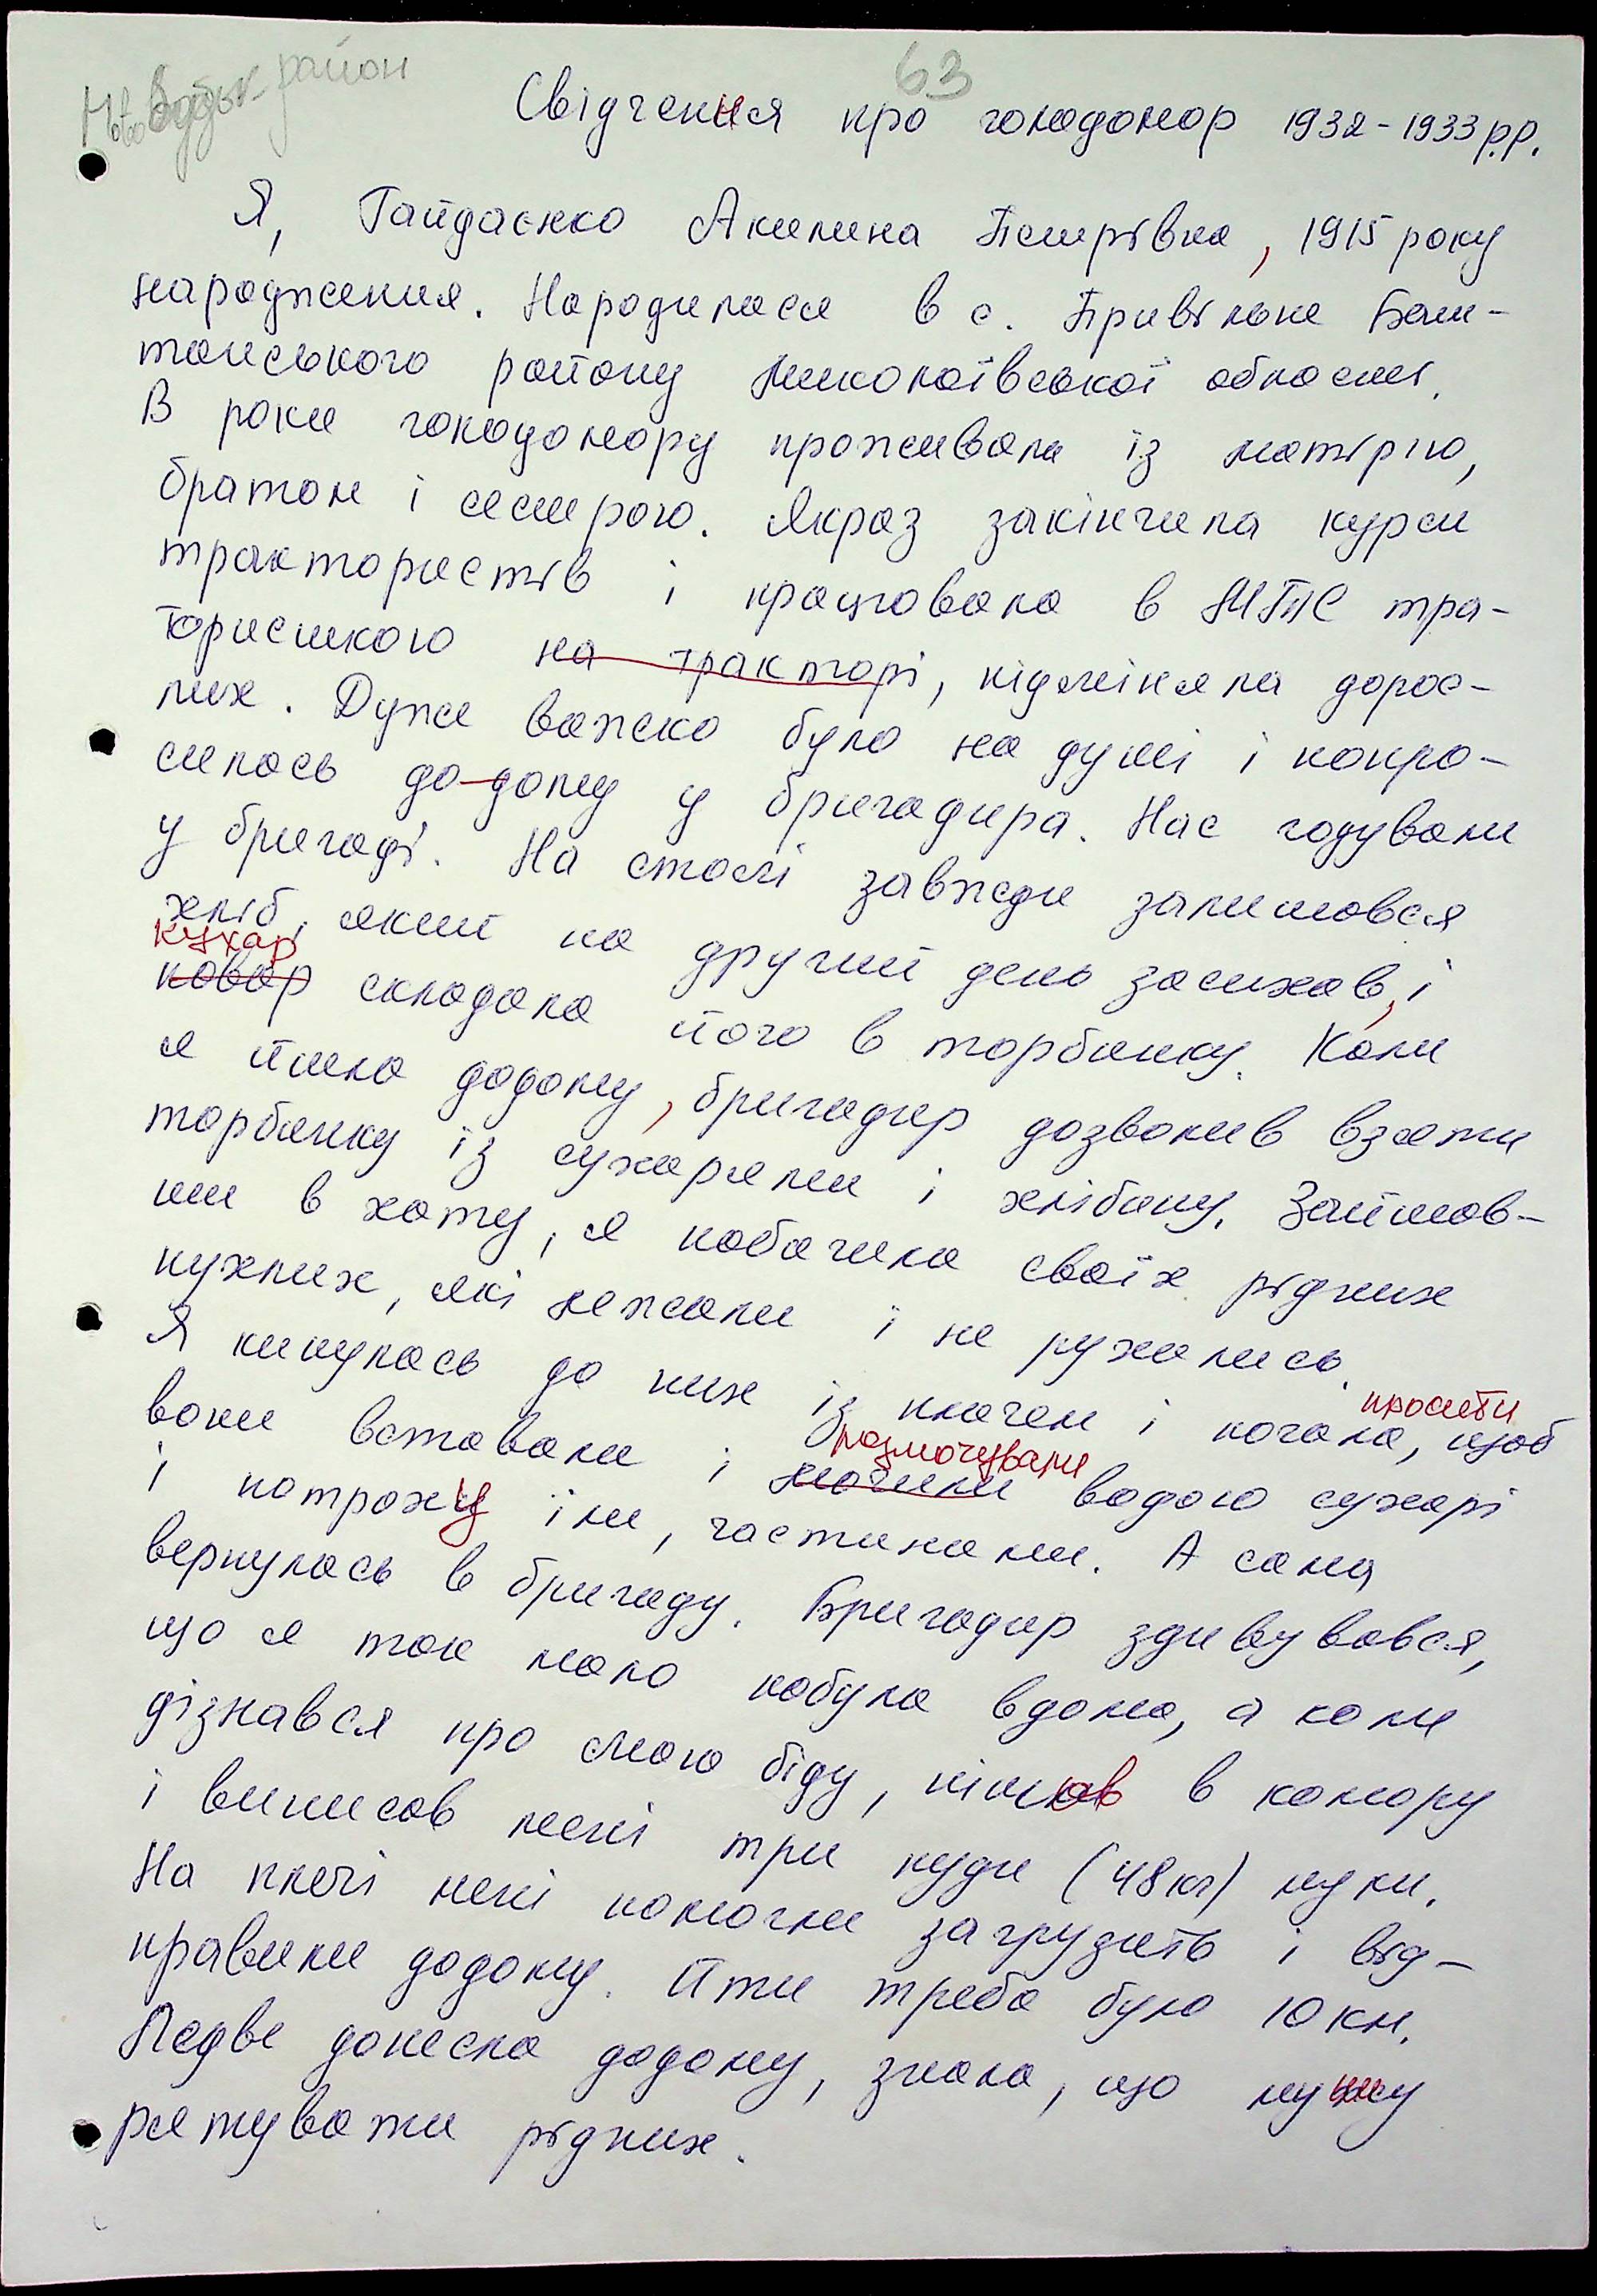 Новоодеськ. район
63
Свідчення про голодомор 1932-1933 р.р.
Я, Гайдаєнко Акилина Петрівна, 1915 року
народження. Народилася в с. Привільне Баш-
танського району Миколаївської області.
В роки голодомору проживала із матірю,
братом і сестрою. Якраз закінчила курси
трактористів і працювала в МТС тра-
тористкою на тракторі, підміняла дорос-
лих. Дуже важко було на душі і попро-
силась до дому у бригадира. Нас годували
у бригаді. На столі завжди залишався
хліб, який на другий день засихав, і
кухар
повар складала його в торбинку. Коли
я йшла додому, бригадир дозволив взяти
торбинку із сухарями і хлібину. Зайшов-
ши в хату, я побачила своїх рідних
пухлих, які лежали і не рухались.
Я кинулась до них із плачем і почала, щоб
просити
вони вставали і мочили водою сухарі
розмочували
і потроху їли, частинами. А сама
вернулась в бригаду. Бригадир здивувався,
що я так мало побула вдома, а коли
дізнався про мою біду, пішов в комору
і виписав мені три пуди (48 кг) муки.
На плечі мені помогли загрузить і від-
правили додому. Йти треба було 10 км.
Ледве донесла додому, знала, що мушу
рятувати рідних.